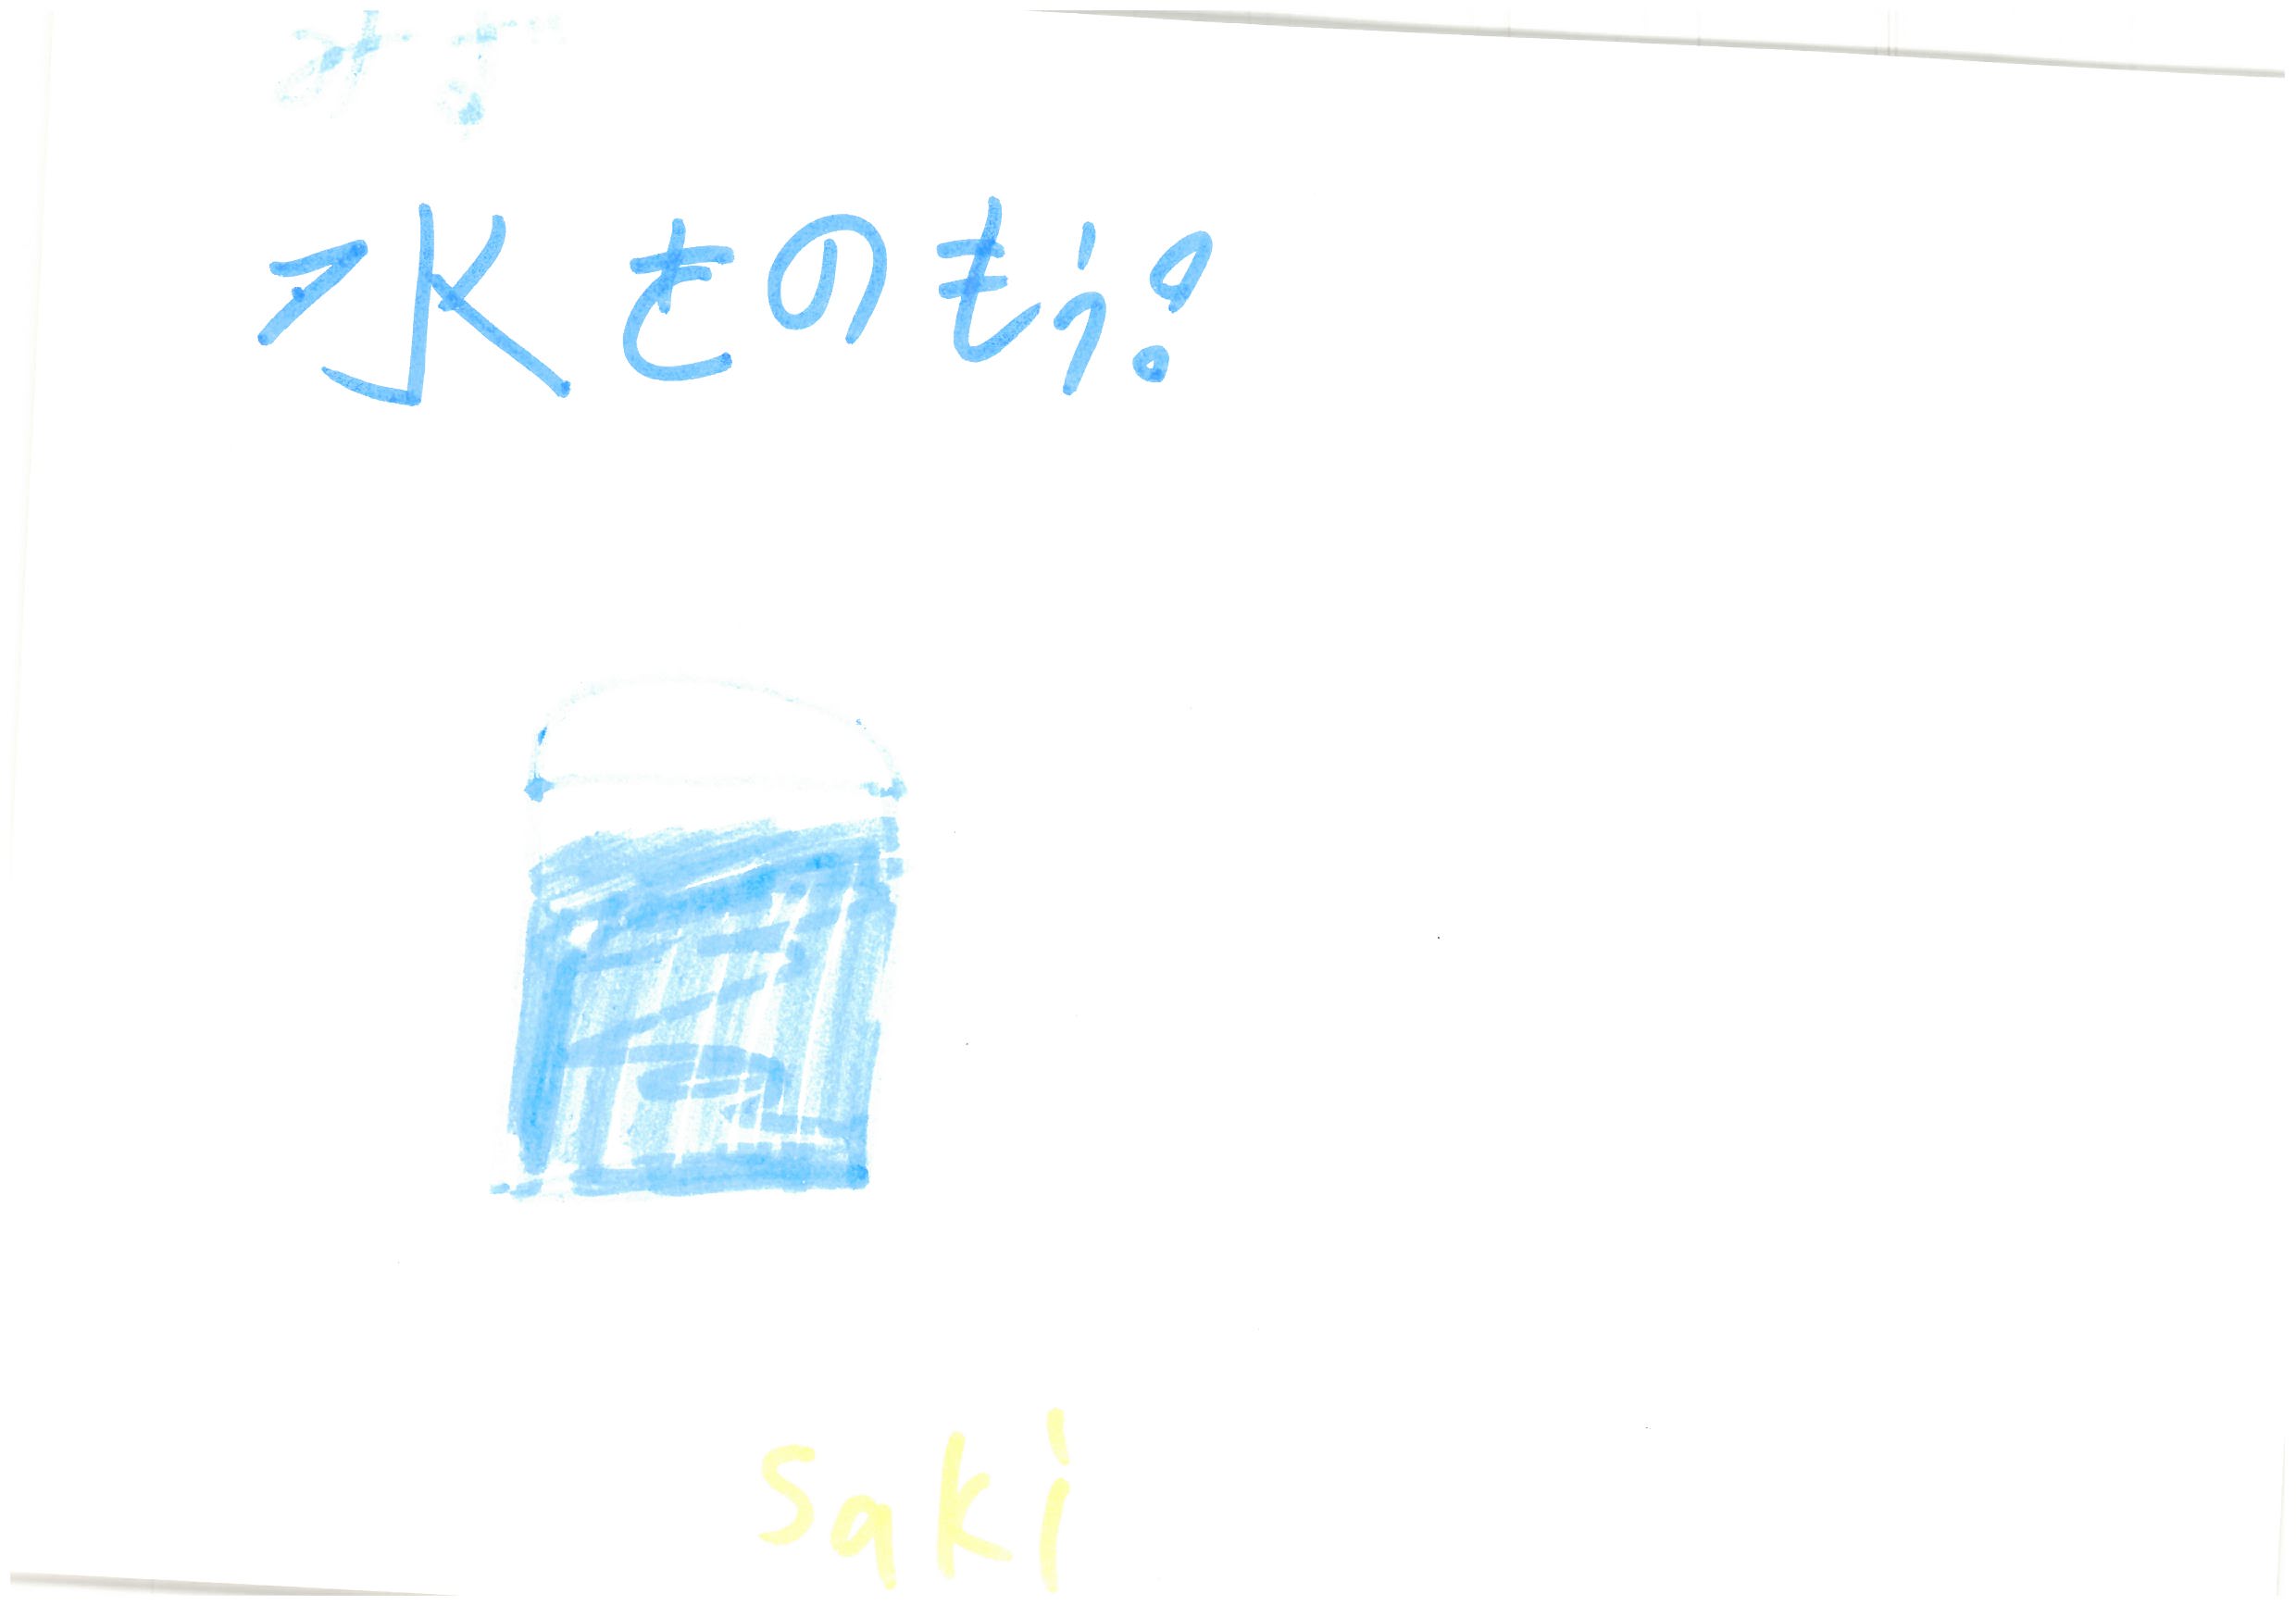 みず
水をのもう!
saki